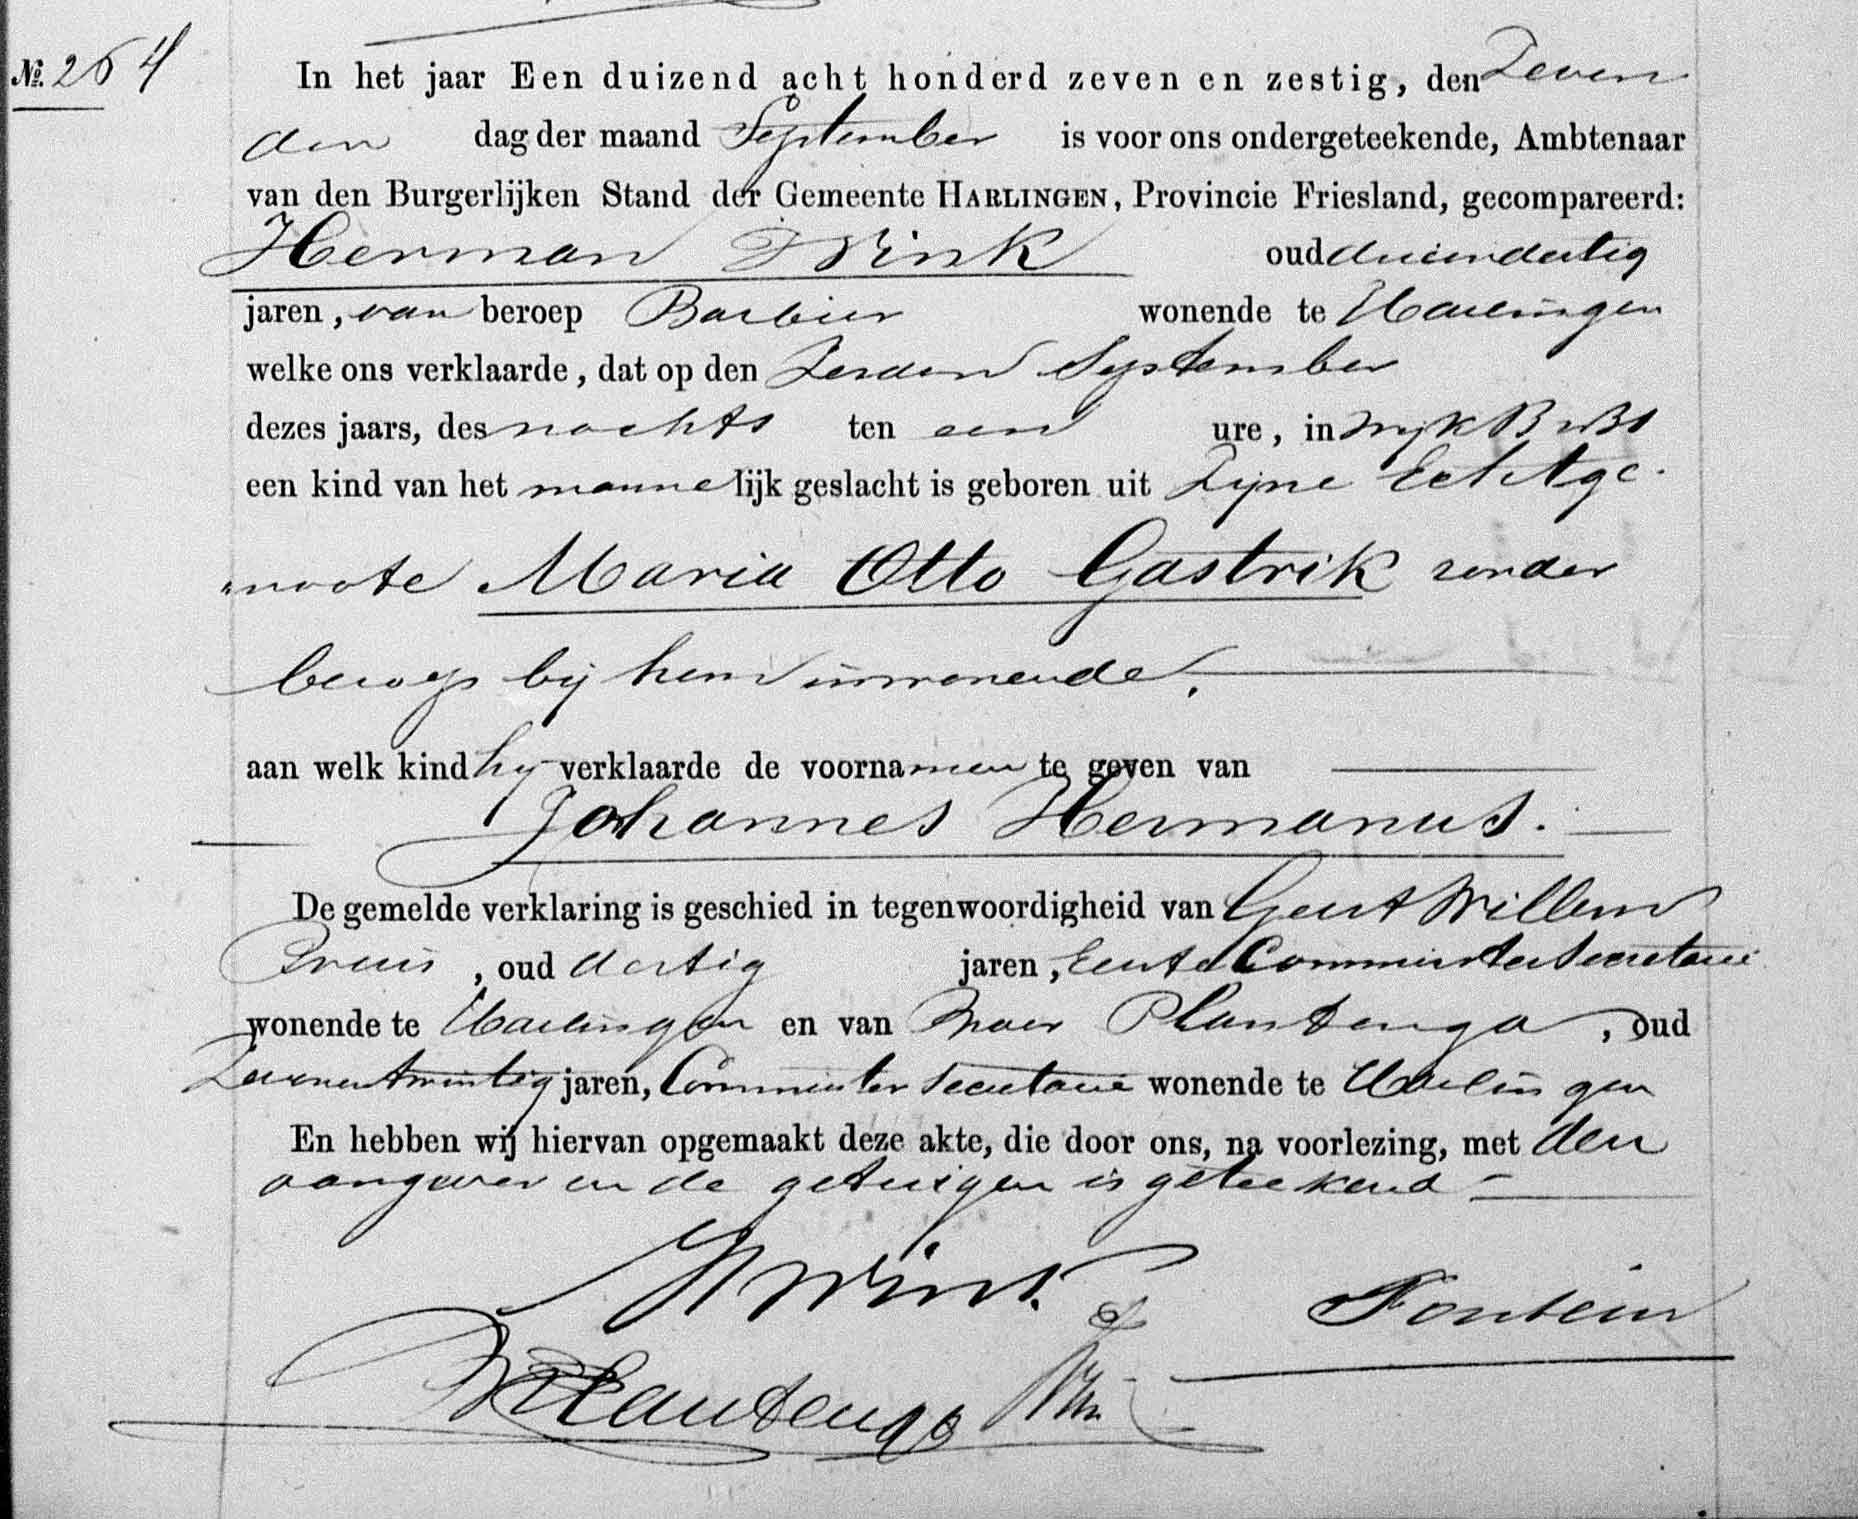 №. 264
In het jaar Een duizend acht honderd zeven en zestig, den Zeven
den dag der maand September is voor ons ondergeteekende, Ambtenaar
van den Burgerlijken Stand der Gemeente HARLINGEN, Provincie Friesland, gecompareerd:
Herman Wink oud drieendertig
jaren, van beroep Barbier wonende te Harlingen
welke ons verklaarde, dat op den Zesden September
dezes jaars, des nachts ten een ure, in Wijk B
een kind van het mannelijk geslacht is geboren uit Zijne Echtge-
noote Maria Otto Gastrik zonder
beroep bij hem inwonende,
aan welk kind hij verklaarde de voornamen te geven van
Johannes Hermanus.
De gemelde verklaring is geschied in tegenwoordigheid van Geert Willem
, oud dertig jaren, Eerste Commies ter Secretarie
wonende te Harlingen en van Plantenga, oud
Zevenentwintig jaren, Commies ter Secretarie wonende te Harlingen
En hebben wij hiervan opgemaakt deze akte, die door ons, na voorlezing, met den
aangever en de getuigen is geteekend
H Wink.
Fontein
Plantenga